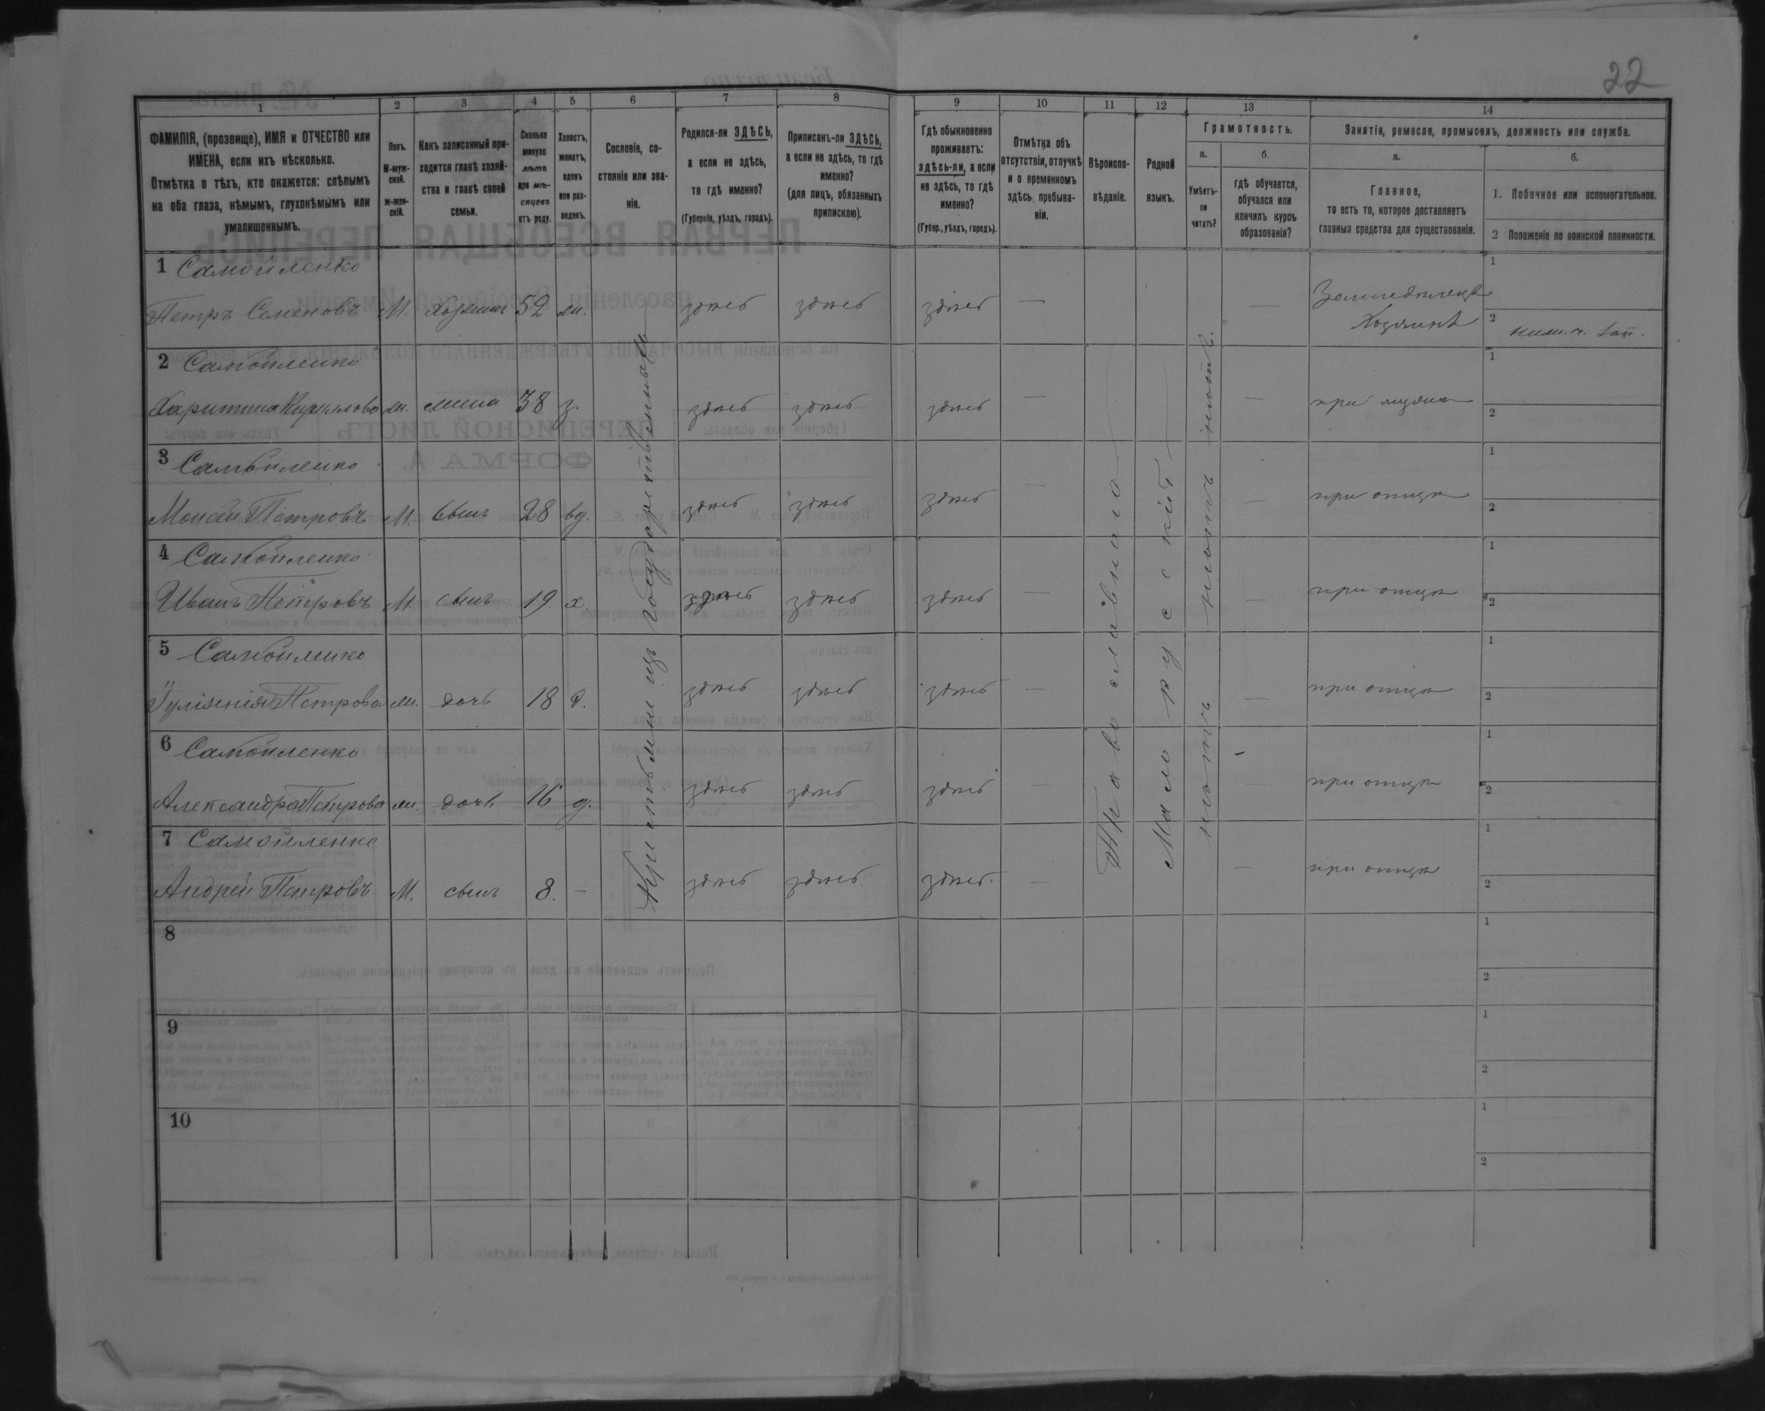 22
1
2
3
4
5
6
7
8
9
10
11
12
13
14
ФАМИЛІЯ, (прозвище), ИМЯ и ОТЧЕСТВО или
ИМЕНА, если ихъ нѣсколько.
Отмѣтка о тѣхъ, кто окажется: слѣпымъ
на оба глаза, нѣмымъ, глухонѣмымъ или
умалишеннымъ.
Полъ.
М-муж-
ской.
ж-жен-
скій.
Какъ записанный при-
ходится главѣ хозяй-
ства и главѣ своей
семьи.
Сколько
минуло
лѣтъ
или мѣ-
сяцевъ
отъ роду.
Холостъ,
женатъ,
вдовъ
или раз-
веденъ.
Сословіе, со-
стояніе или зва-
ніе.
Родился-ли ЗДѢСЬ,
а если не здѣсь,
то гдѣ именно?
(Губернія, уѣздъ, городъ).
Приписанъ-ли ЗДѢСЬ,
а если не здѣсь, то гдѣ
именно?
(для лицъ, обязанныхъ
припискою).
Гдѣ обыкновенно
проживаетъ:
здѣсь-ли, а если
не здѣсь, то гдѣ
именно?
(Губер., уѣздъ, городъ).
Отмѣтка объ
отсутствіи, отлучкѣ
и о временномъ
здѣсь пребыва-
ніи.
Вѣроиспо-
вѣданіе.
Родной
языкъ.
Грамотность.
а.
Умѣетъ-
ли
читать?
б.
гдѣ обучается,
обучался или
кончилъ курсъ
образованія?
Занятія, ремесла, промыселъ, должность или служба.
а.
Главное,
то есть то, которое доставляетъ
главныя средства для существованія.
б.
1. Побочное или вспомогательное.
2 Положеніе по воинской повинности.
1 Самойленко
Петръ Семеновъ М. хозяинъ 52 ж. здѣсь здѣсь здѣсь — — Земледѣлецъ
Хозяинъ
2 Самойленко
Харитина Кирилова ж. жена 38 з. здѣсь здѣсь здѣсь — —
3 Самойленко
Моисей Петровъ М. сынъ 28 вд. здѣсь здѣсь здѣсь — — при отцѣ
4 Самойленко
Иванъ Петровъ М. сынъ 19 х. здѣсь здѣсь здѣсь — — при отцѣ
5 Самойленко
Іуліянія Петрова ж. дочь 18 д. здѣсь здѣсь здѣсь — — при отцѣ
6 Самойленко
Александра Петрова ж. дочь 16 д. здѣсь здѣсь здѣсь — — при отцѣ
7 Самойленко
Андрей Петровъ М. сынъ 8. — здѣсь здѣсь здѣсь. — — при отцѣ
8
9
10
Крестьяне изъ государственныхъ
Православное
Малорусскій
нѣтъ нѣтъ нѣтъ